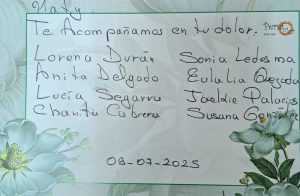 Naty:
Te Acompañamos en tu dolor.
Lorena Durán Sonia Ledesma
Anita Delgado Eulalia Quezada
Lucía Segarra Joeldie Palacios
Chanita Cabrera Susana González
09-07-2025